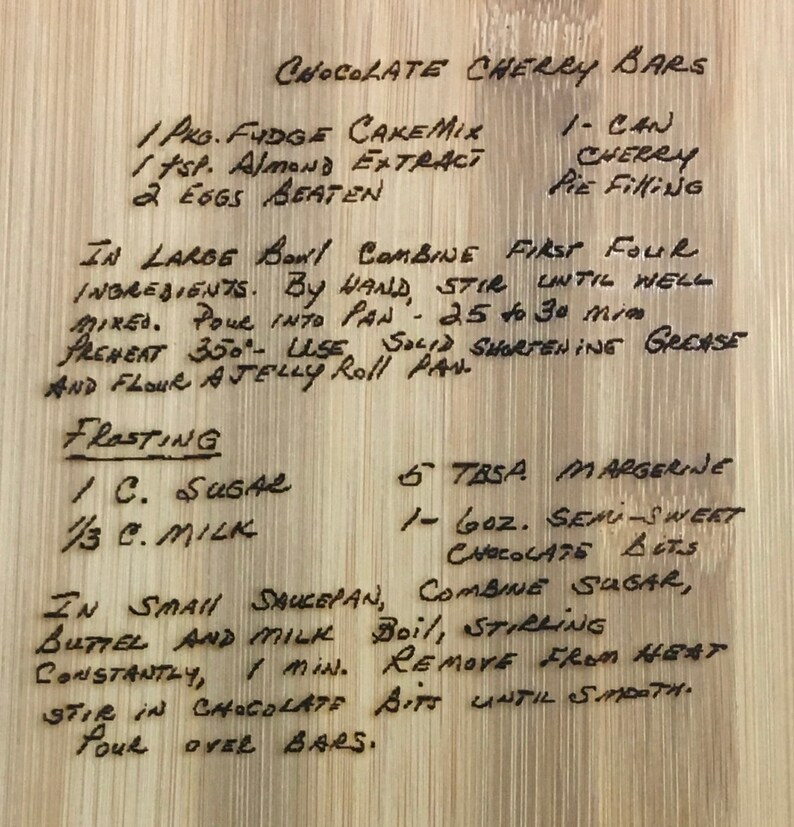 CHOCOLATE CHERRY BARS
1 PKG. FUDGE CAKE MIX
1 tsp. AlMOND EXTRACT
2 EGGS BEATEN
1- CAN
CHERRY
PIE FIlliNG
IN LARGE Bowl COMBINE FIRST FOUR
INGREDIENTS. BY HAND, STIR UNTIL WELL
MIXED. POUR INTO PAN - 25 to 30 min
PREHEAT 350°- USE SOLID SHORTENING GREASE
AND FLOUR A JELLY Roll PAN.
FROSTING
1 C. SUGAR
1/3 C. MILK
5 TBSP. MARGERINE
1- 6oz. SEMI-SWEET
CHOCOLATE BITS
IN SMAll SAUCEPAN, COMBINE SUGAR,
BUTTER AND MILK Boil, STIRRING
CONSTANTLY, 1 MIN. REMOVE FROM HEAT
STIR IN CHOCOLATE BITS UNTIL SMOOTH.
POUR OVER BARS.